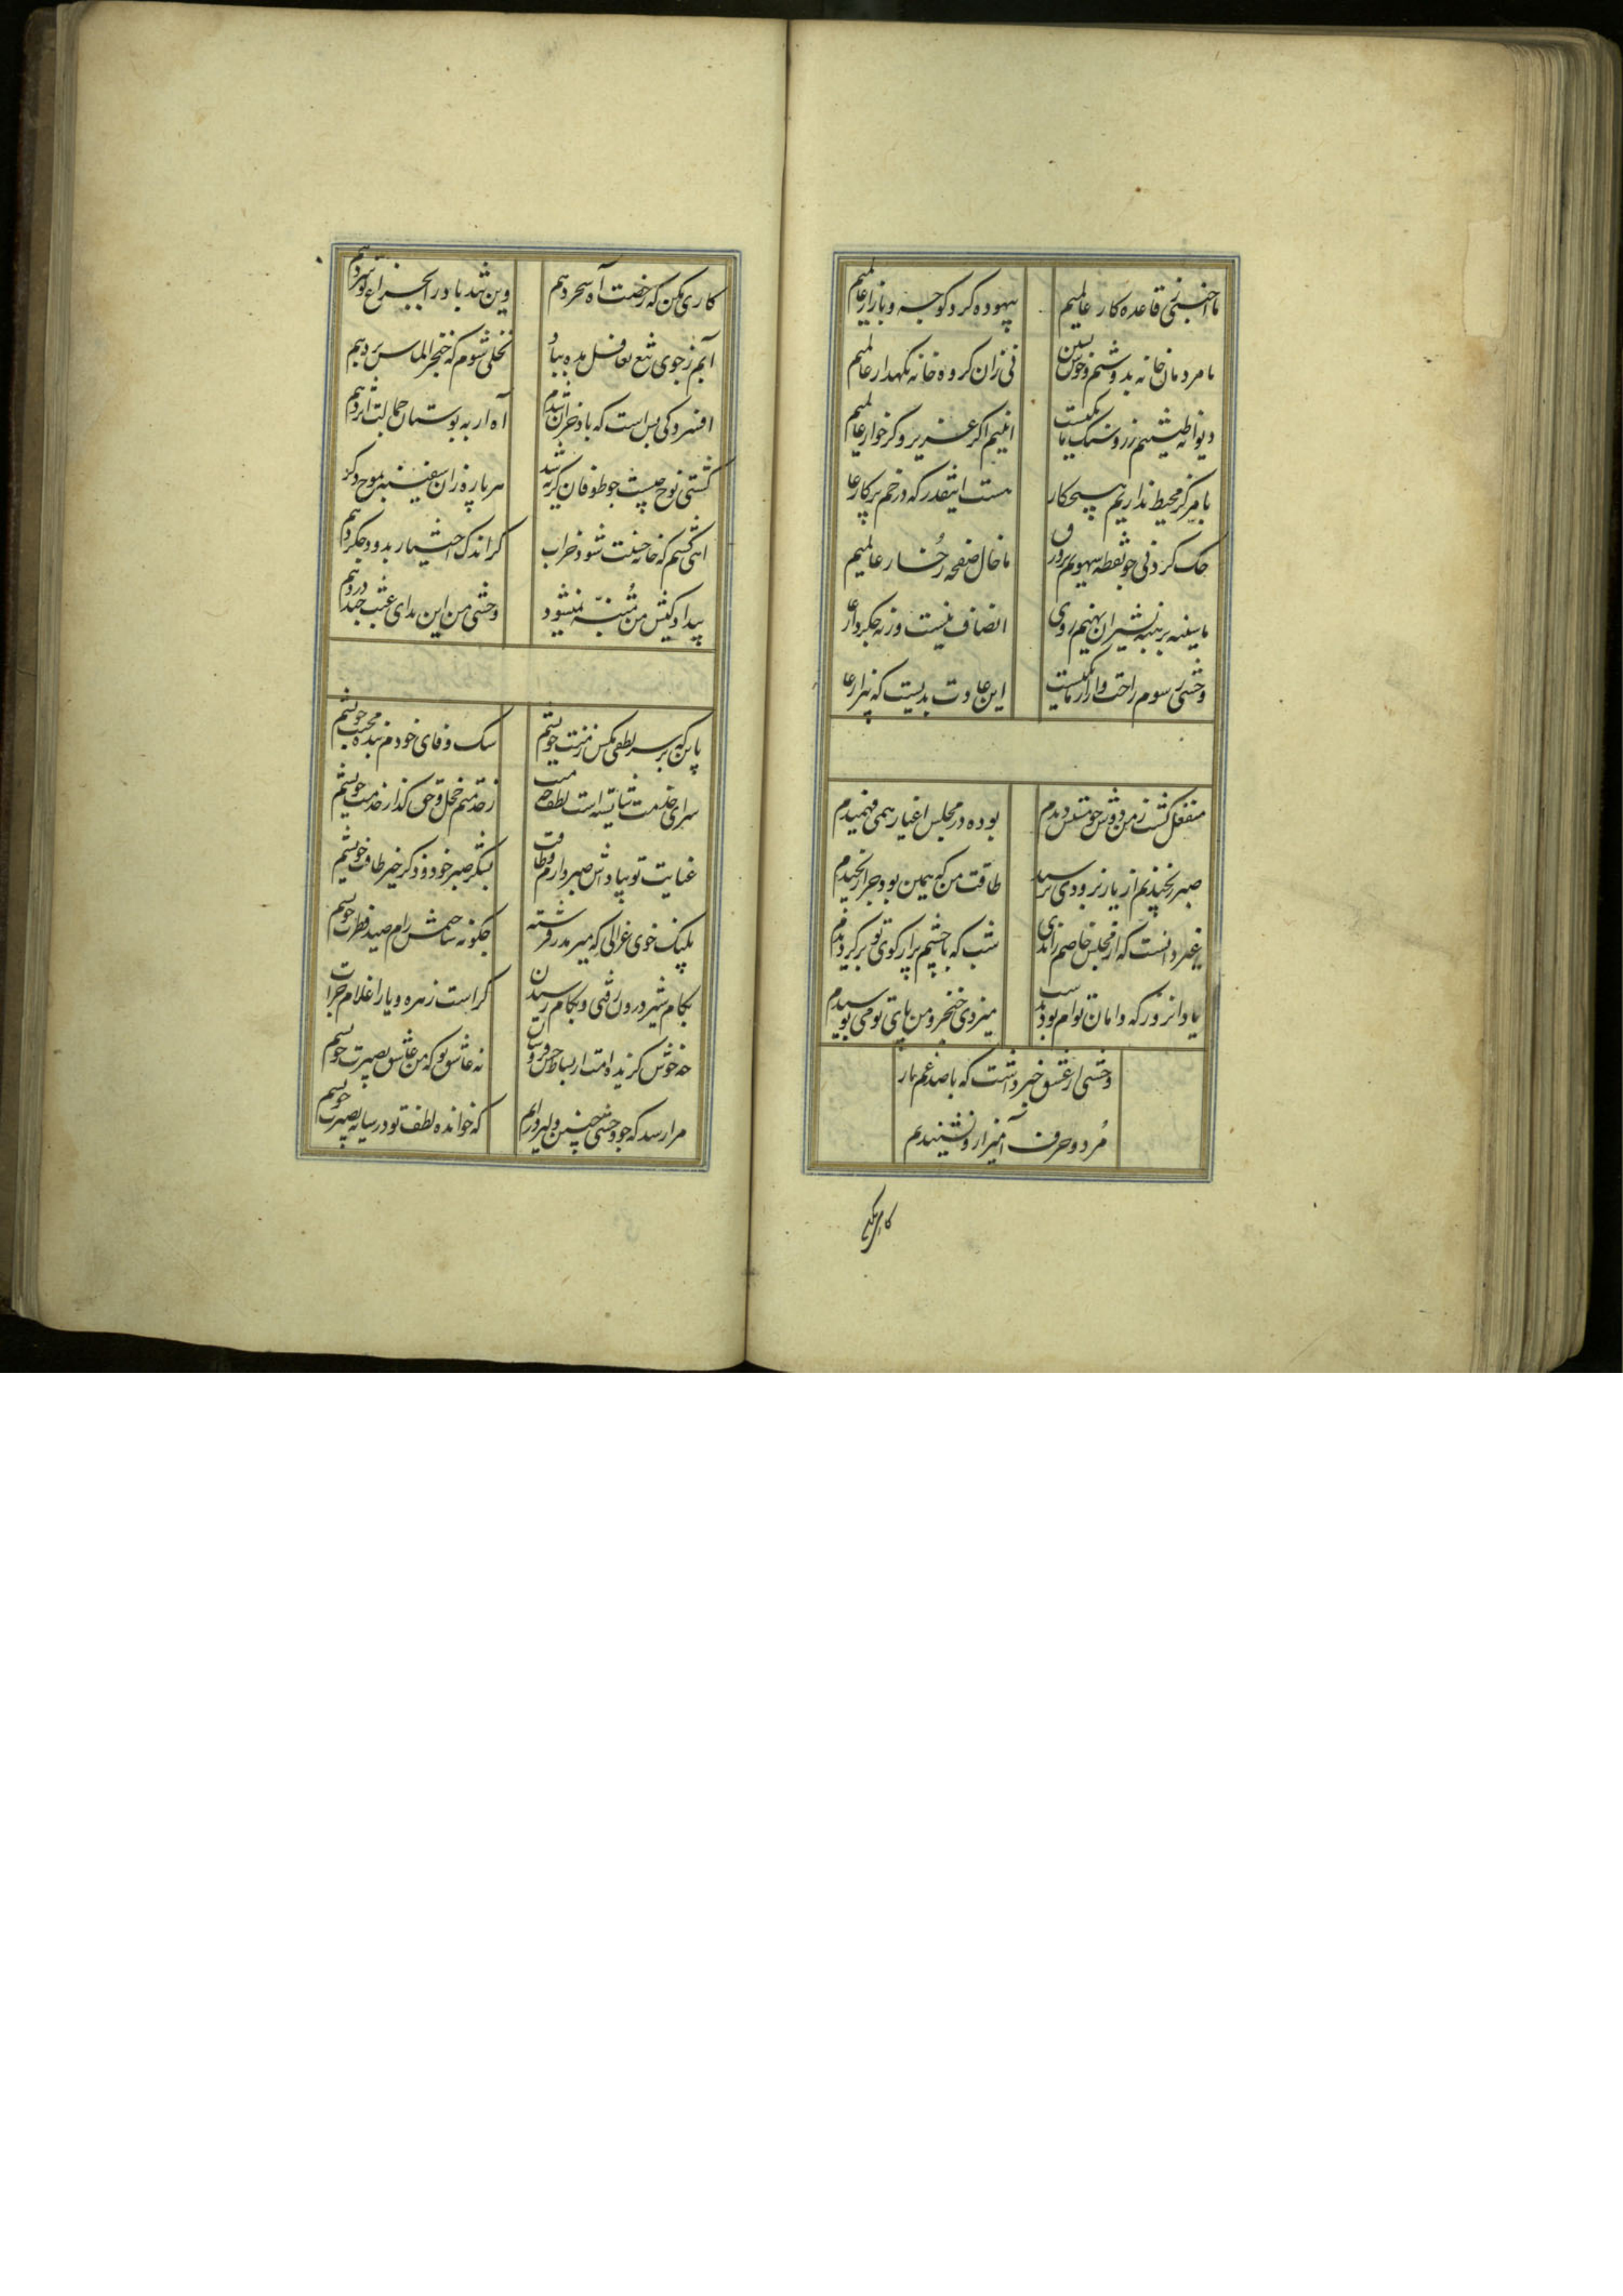 ما اجنبی ز قاعده کار عالمیم
بیهوده کرد کوچه و بازار عالمیم
ما مردمان خانه بدوشیم و خوش نشین
نی زان کروه خانه نکهدار عالمیم
دیوانه طینتیم زر و سنک ما یکیست
اینیم اکر عزیز و کر خوار عالمیم
با مرکز محیط نداریم هیچکار
هست اینقدر که در خم پرکار عا
حک کردنی چو نقطه سهویم بر ورق
ما خال صفحه رخسار عالمیم
ما سینه بر سینه شیران نهیم روی
انصاف نیست ورنه جکردار عا
وحشی رسوم راحت و آزار ما یکیست
این عادت بدیست که بیزار عا
منفعل کشت ز من دوش چو مستش دیدم
بوده در مجلس اغیار همی فهمیدم
صبر رنجیدنم از یار نه رودی برسید
طاقت من که همین بود چرا رنجیدم
غیر دانست که از مجلس خاصم راندی
شب که با چشم تر از کوی تو برکردیدم
یاد آنروز که دامان توام بود بدست
میزدی خنجر و من پای تو می بوسیدم
وحشی از عشق خبر داشت که با صد غم یار
مرد و حرف آمیز ازو نشنیدم
کاری مکن
کاری مکن که رخصت آه سحر دهم
وین تند باد را بچراغ تو سر دهم
آبم ز جوی تیغ تغافل مده مباد
نخلی شوم که خنجر الماس بر دهم
افسردکی بس است که باد خزان شدم
آه ار به بوستان جمالت اثر دهم
کشتی نوح چیست چو طوفان کریه شد
هر پاره زان سفینه بموج دکر
آهی کشم که خانه خست شود خراب
کر اندک اختیار بدود جکر دهم
بیدار و کین من متنبه نمیشود
وحشی من این ندای عبث چند در دهم
باین که بر سر لطفی مکش ز منت خویشم
سک وفای خودم بنده محبت خویشم
سزای خدمت شایسته است لطف
ز خدمتم خجل و حق کذار خدمت خویشم
عنایت تو بپاداش صبر دارم و طاقت
بشکر صبر خود و ذکر خیر طاقت خویشم
پلنک خوی غزالی که میرمد ز فرشته
چکونه ساختمش رام صید فطرت خویشم
بکام شیر درون رفتن و بکام رسیدن
کراست زهره و یارا غلام جرات
چه خوش کزیده امت از بساط حسن فروشان
نه عاشق تو که من عاشق بصیرت خویشم
مرا رسد که چو وحشی چنین دلیر درایم
که خوانده لطف تو در سایه بصیرت خویشم